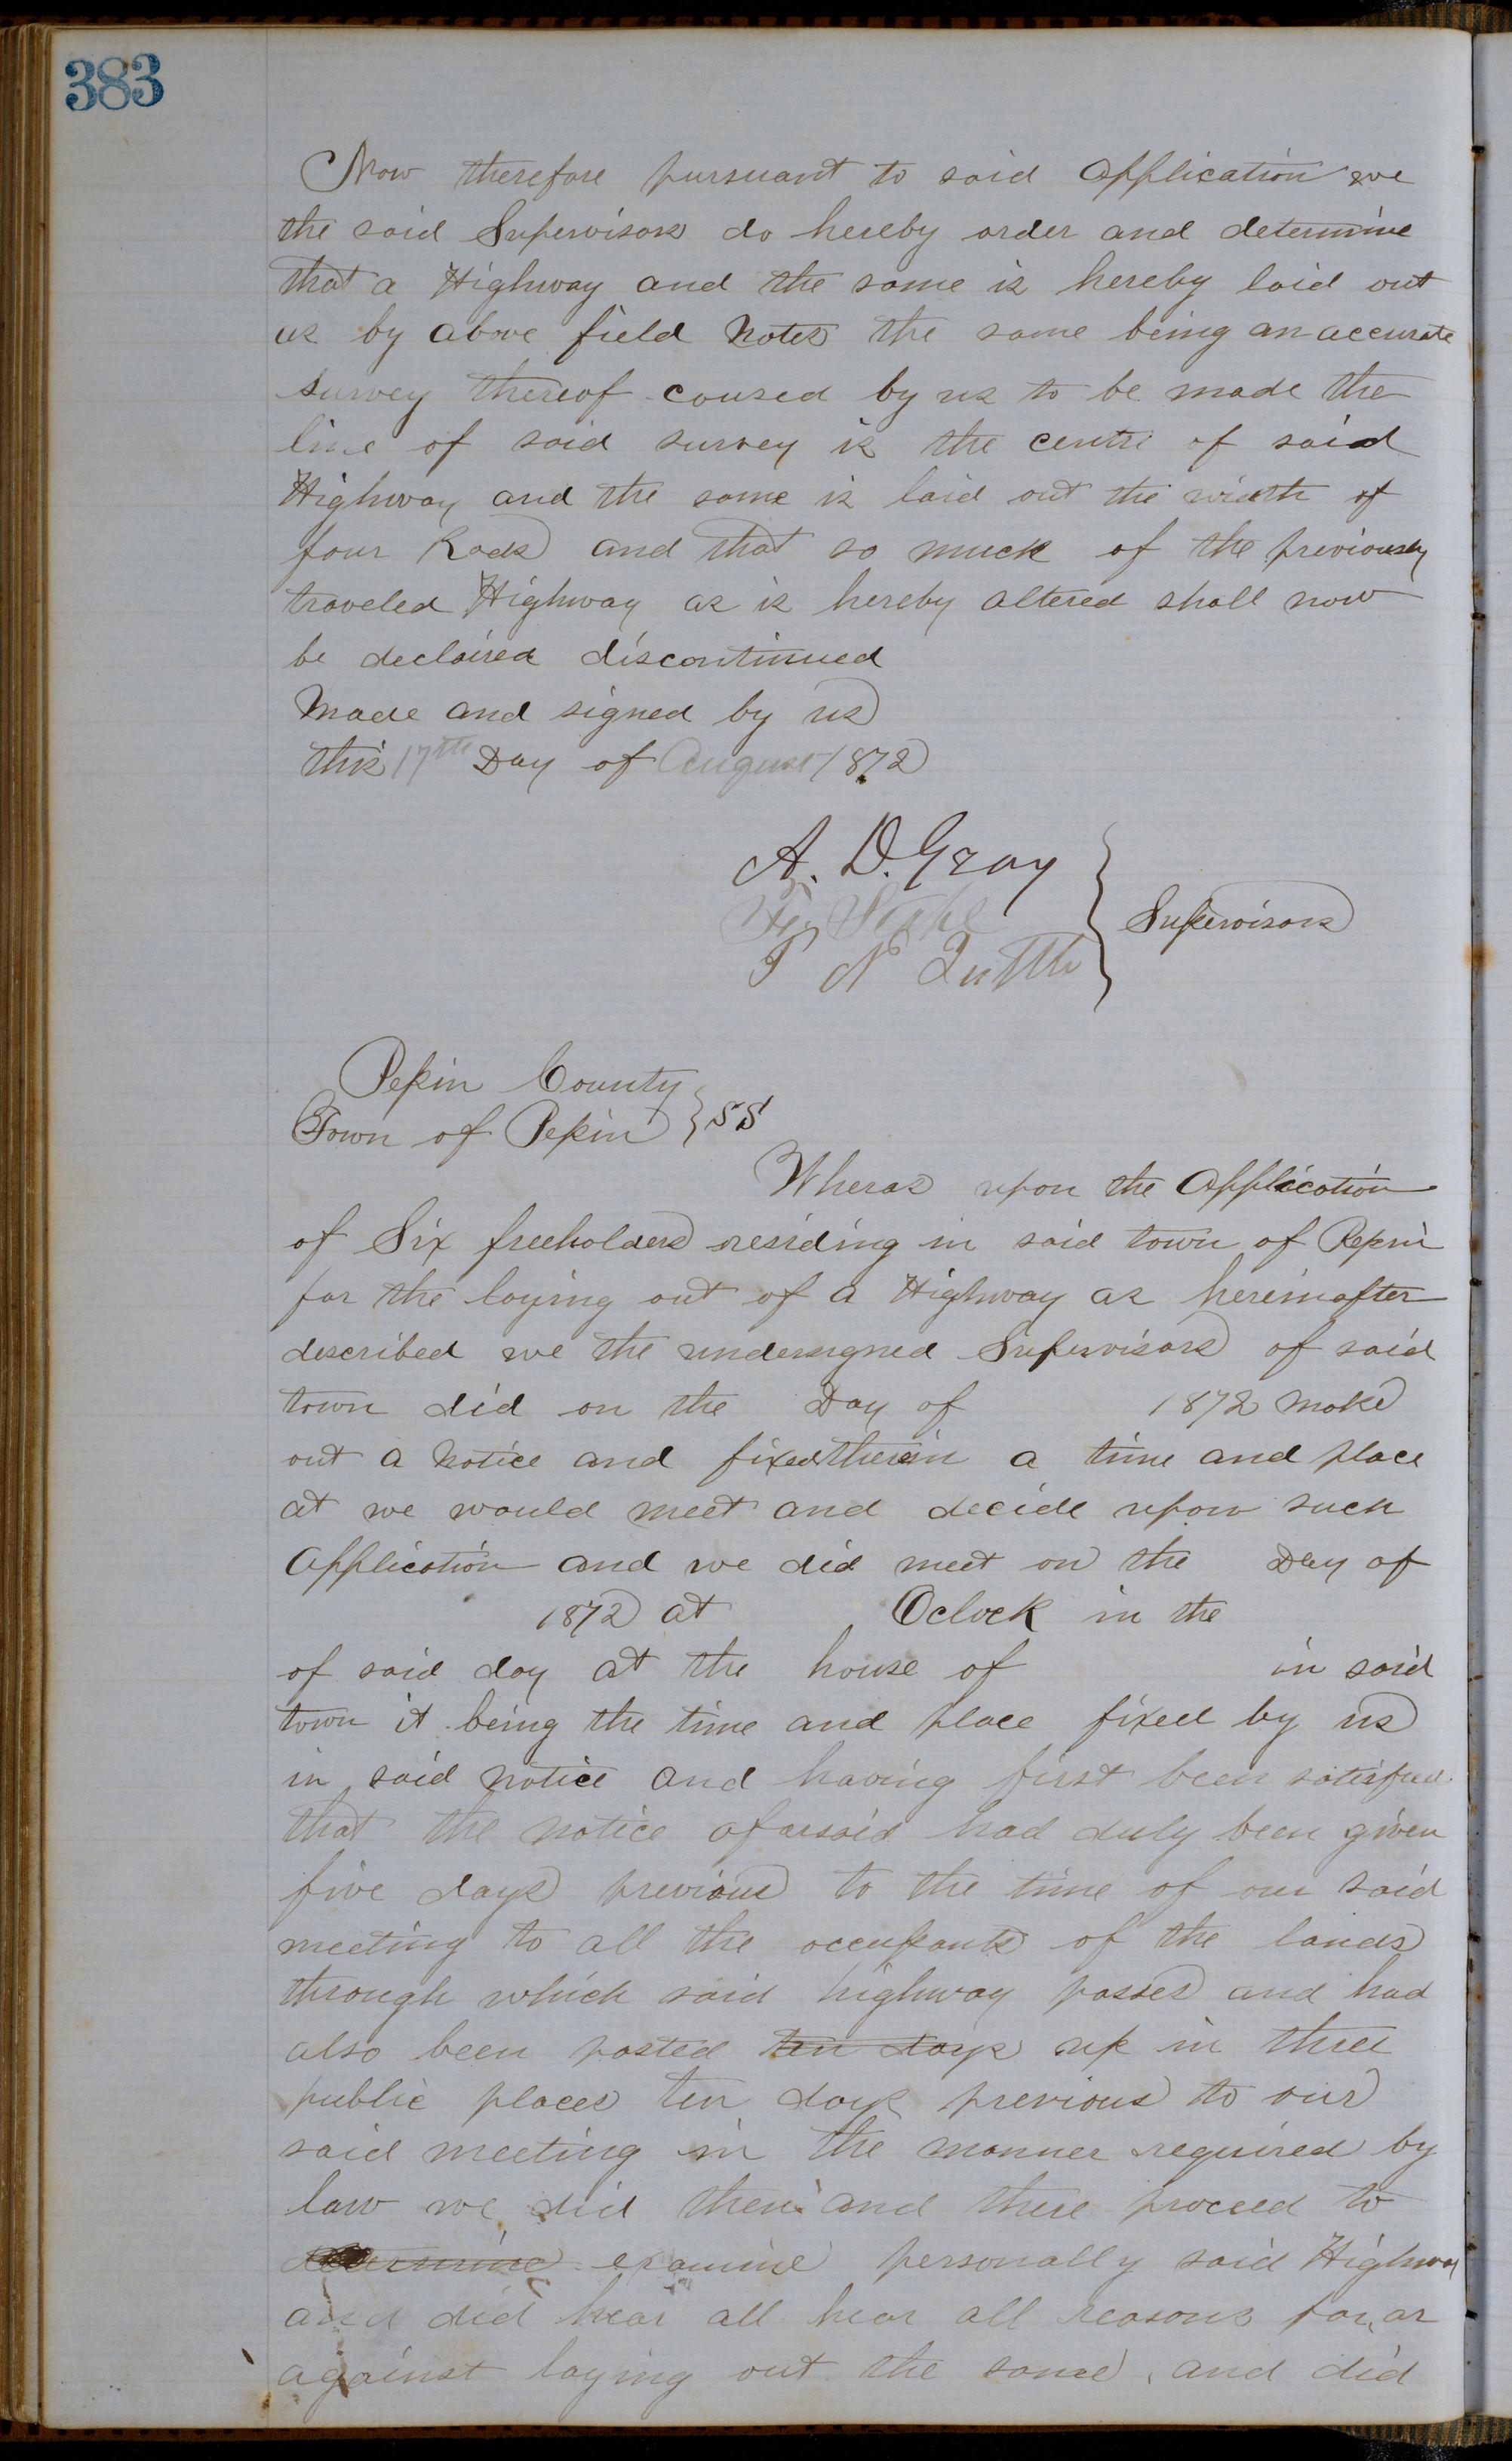 383
Now therefore pursuant to said Application we
the said Supervisors do hereby order and determine
that a Highway and the same is hereby laid out
us by above field Notes the same being an accurate
survey thereof caused by us to be made the
line of said survey is the centre of said
Highway and the same is laid out the width of
four Rods and that so much of the previously
traveled Highway as is hereby altered shall now
be declaired discontinued
Made and signed by us
this 17th Day of August 1872
A. D. Gray
Supervisors
T N Tuttle
Pepin County
Town of Pepin } SS
Wheras upon the Application
of Six freeholders residing in said town of Pepin
for the laying out of a Highway as hereinafter
described we the undersigned Supervisors of said
town did on the Day of 1872 make
out a Notice and fixed therein a time and place
at we would meet and decide upon such
Application and we did meet on the Day of
1872 at Oclock in the
of said day at the house of in said
town it being the time and place fixed by us
in said notice and having first been satisfied
that the notice afaresaid had duly been given
five days previous to the time of our said
meeting to all the occupants of the lands
through which said highway passes and had
also been posted ten days up in three
public places ten days previous to our
said meeting in the manner required by
law we did then and there proceed to
determine examine personally said Highway
and did hear all hear all reasons for, or
against laying out the same, and did